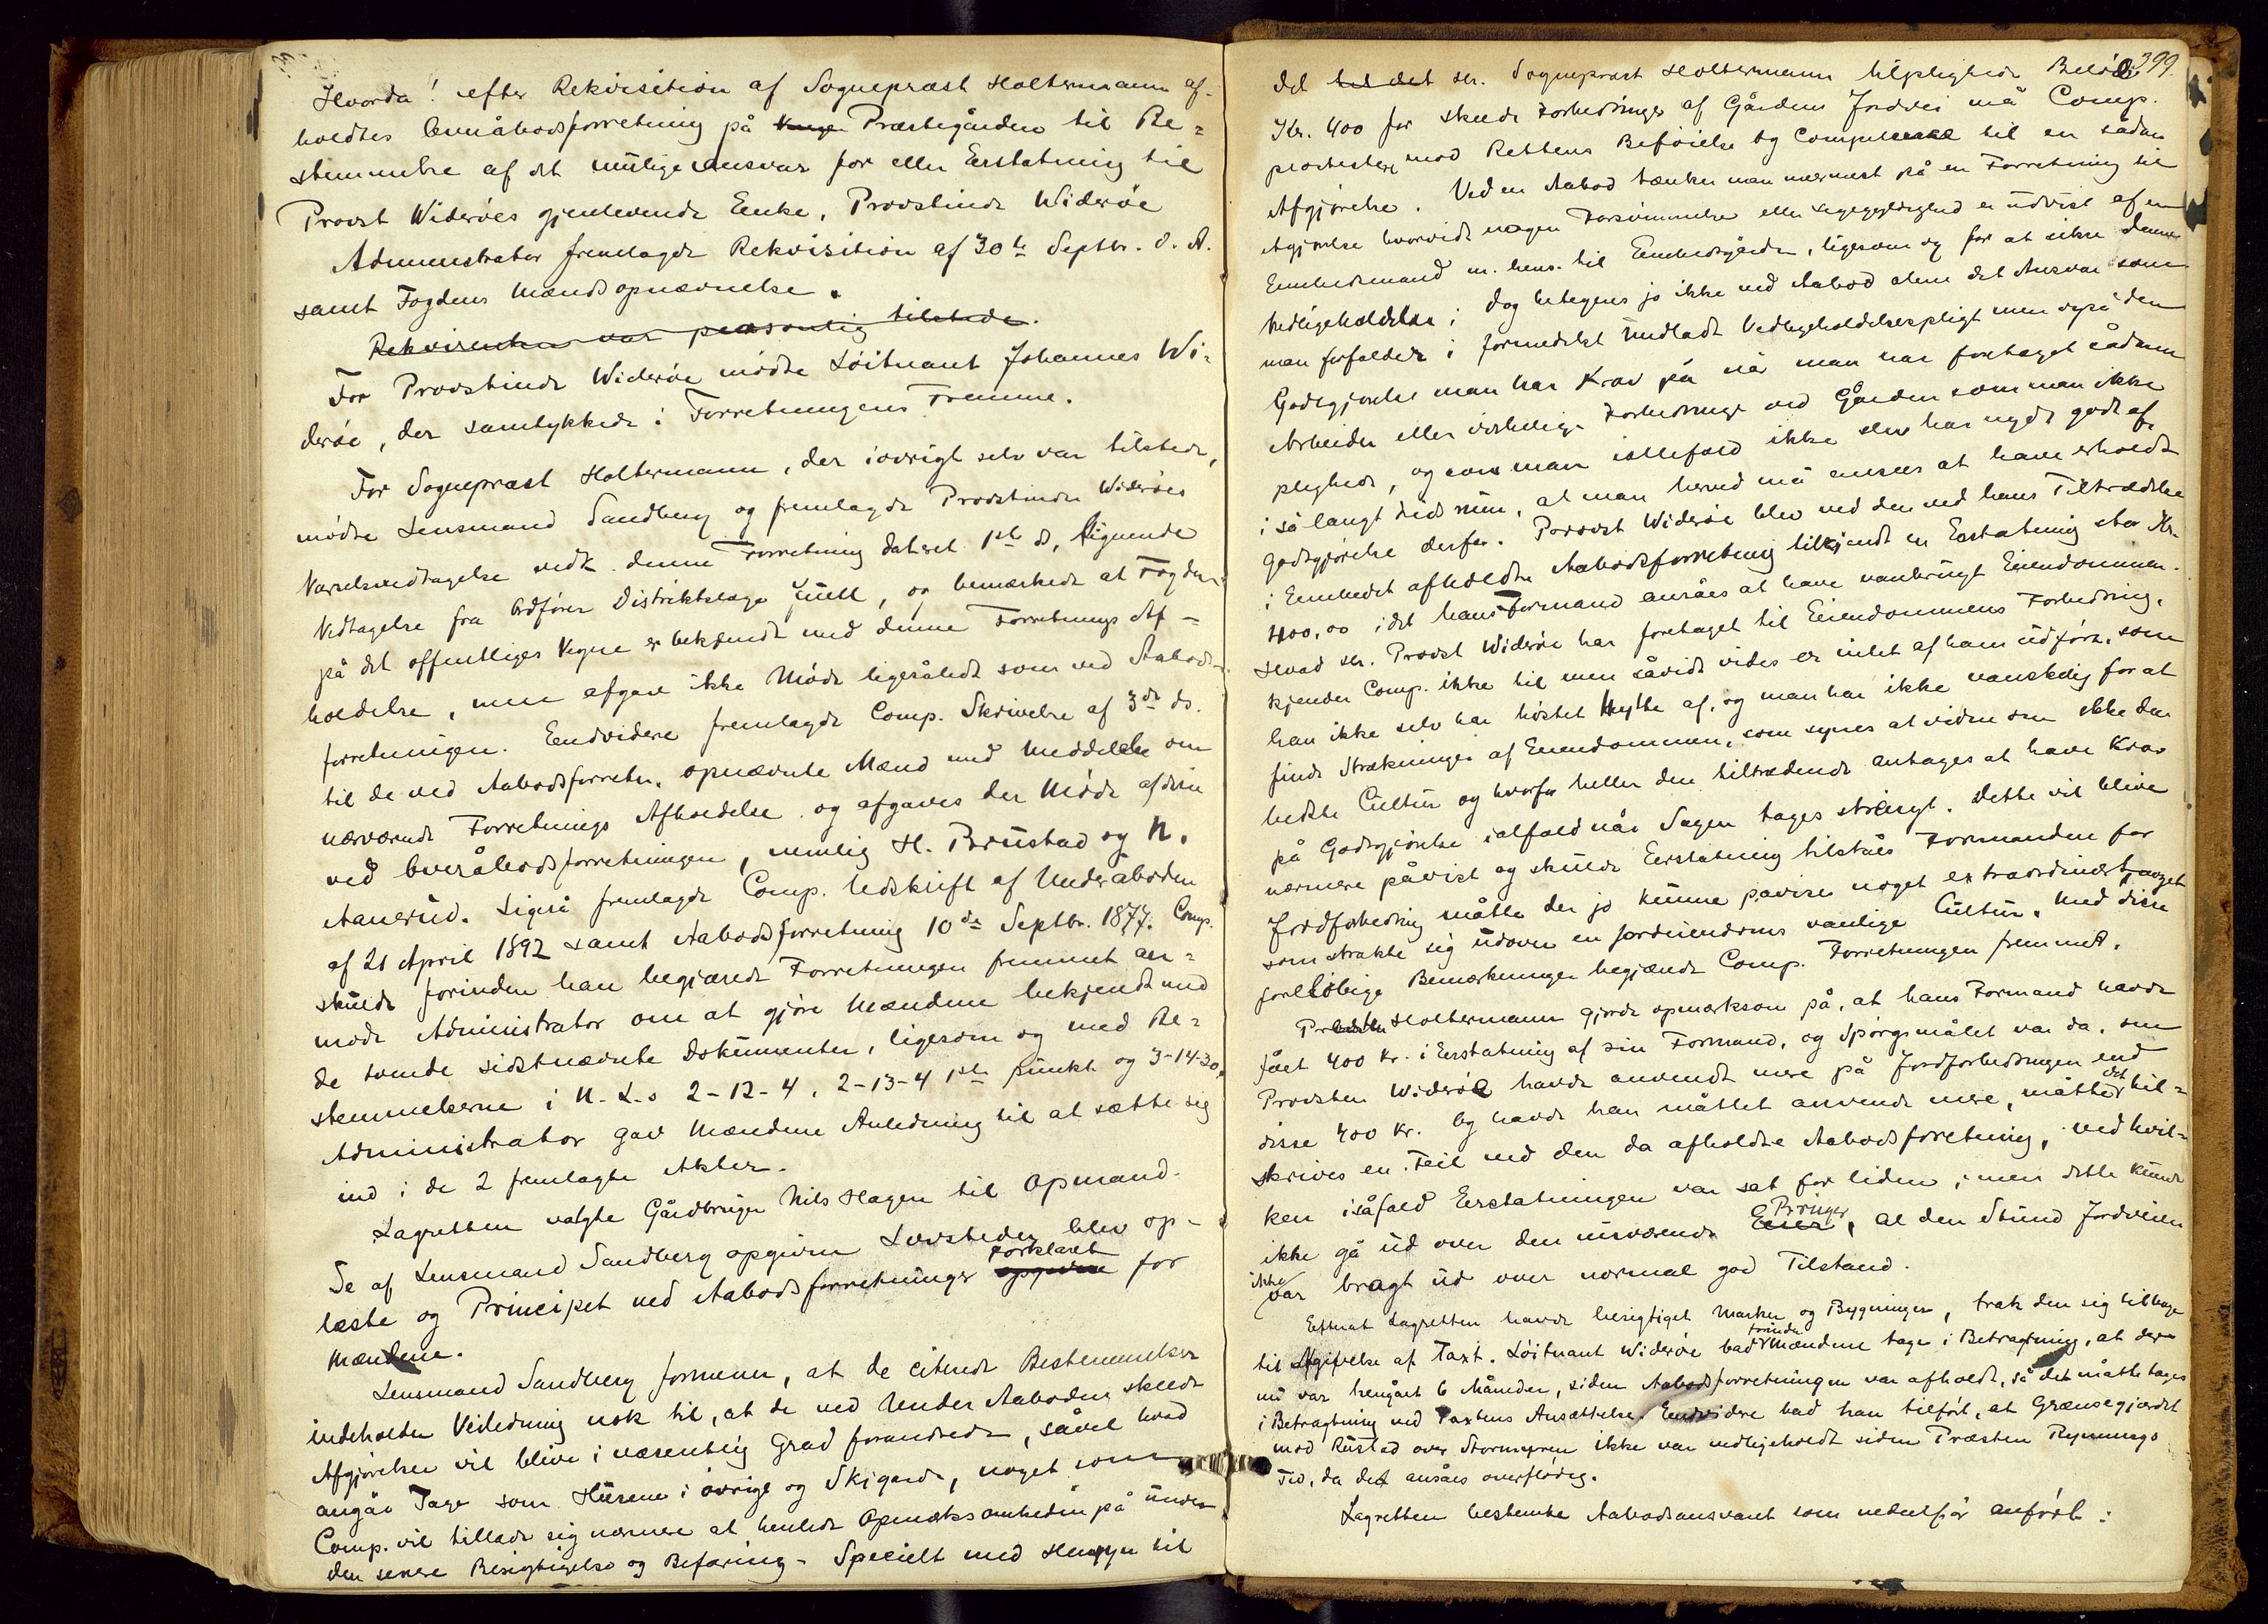 Hvorda! efter Rekvisition af Sognepræst Holtermann af-
holdtes Overåbodsforretning på Præstegården til Be-
stemmelse af det mulige Ansvar for eller Erstatning til
Provst Widerøes gjenlevende Enke, Provstinde Widerøe
Administrator fremlagde Rekvisition af 30te Septbr. d. A.
samt Fogdens Mændsopnævnelse.
Rekvirenten var personlig tilstede.
For Provstinde Widerøe mødte Løitnant Johannes Wi-
derøe, der samtykkede i Forretningens Fremme.
For Sognepræst Holtermann, der iøvrigt selv var tilstede,
mødte Lensmand Sandberg og fremlagde Provstinde Widerøes
Varselsvedtagelse vedk. denne Forretning dateret 1ste ds, lignende
Vedtagelse fra Ordfører Distriktslæge Juell, og bemærkede at Fogden
på det offentliges Vegne er bekjendt med denne Forretnings Af-
holdelse, men afgav ikke Møde ligesåledt som ved Aabods-
forretningen. Endvidere fremlagde Comp. Skrivelse af 3de ds.
til de ved Aabodsforretn. opnævnte Mænd med Meddelelse om
nærværende Forretnings Afholdelse og afgaves der Møde af disse
ved Overåbodsforretningen, nemlig H. Brustad og N.
Aanerud. Ligeså fremlagde Comp. Udskrift af Underaboden
af 21 April 1892 samt Aabodsforretning 10de Septbr. 1877. Comp.
skulde forinden han begjærede Forretningen fremmet an-
mode Administrator om at gjøre Mændene bekjendt med
de tvende sidstnævnte Dokumenter, ligesom og med Be-
stemmelserne i N.L.s 2-12-4, 2-13-4 1ste punkt og 3-14-30.
Administrator gav Mændene Anledning til at sætte sig
ind i de 2 fremlagte Akter.
Lagretten valgte Gårdbruger Nils Hagen til Opmand.
De af Lensmand Sandberg opgivne Lovsteder blev op-
læste og Principet ved Aabodsforretninger forklaret for
Mændene.
Lensmand Sandberg formener, at de citerede Bestemmelser
indeholder Veiledning nok til, at de ved Under Aaboden skeede
Afgjørelser vil blive i væsentlig Grad forandrede, såvel hvad
angår Tage som Husene i øvrige og Skigarde, noget som
Comp. vil tillade sig nærmere at henlede Opmærksomheden på under
den senere Besigtigelse og Befaring. Specielt med Hensyn til
399.
det hr. Sognepræst Holtermann tilpligtede Beløb
Kr. 400 for skeede Forbedringer af Gårdens Jordvei må Comp.
protestere mod Rettens Beføielse og Competence til en sådan
Afgjørelse. Ved en Aabod tænker man nærmest på en Forretning til
Afgjørelse hvorvidt nogen Forsømmelse eller Ligegyldighed er udvist af en
Embedsmand m. hens. til Embedsgården, ligesom og for at sikre dennes
Vedligeholdelse; dog betegnes jo ikke ved Aabod alene det Ansvar som
man forfalder i formedelst undladt Vedligeholdelsespligt men også den
Godtgjørelse man har Krav på når man har foretaget sådanne
Arbeider eller virkelige Forbedringer ved Gården som man ikke
pligtede, og som man iallefald ikke selv har nydt godt af
i så langt Tidsrum, at man herved må ansees at have erholdt
godtgjørelse derfor. Provst Widerøe blev ved den ved hans Tiltrædelse
i Embedet afholdte Aabodsforretning tilkjendt en Erstatning stor Kr.
400,00 idet hans Formand ansåes at have vanbrugt Eiendommen.
Hvad hr. Provst Widerøe har foretaget til Eiendommens Forbedring,
kjender Comp. ikke til men såvidt vides er intet af ham udført, som
han ikke selv har høstet Nytte af, og man har ikke vanskelig for at
finde Strækninger af Eiendommen, som synes at vidne om ikke den
bedste Cultur og hvorfor heller den tiltrædende antages at have Krav
på Godtgjørelse ialfald når Sagen tages strængt. Dette vil blive
nærmere påvist og skulde Erstatning tilståes Formanden for
Jordforbedring måtte der jo kunne påvises noget extraordinært, noget
som strakte sig udover en jordeiendoms vanlige Cultur. Med disse
foreløbige Bemærkninger begjærede Comp. Forretningen fremmet.
Præsten Holtermann gjorde opmærksom på, at hans Formand havde
fået 400 Kr. i Erstatning af sin Formand, og Spørgsmålet var da, om
Provsten Widerøe havde anvendt mere på Jordforbedringen end
disse 400 Kr. Og havde han måttet anvende mere, måtte det til-
skrives en Feil ved den da afholdte Aabodsforretning, ved hvil-
ken isåfald Erstatningen var sat for liden, men dette kunde
ikke gå ud over den nuværende Bruger, al den Stund Jordveien
ikke var bragt ud over normal god Tilstand.
Efterat Lagretten havde besigtiget Marker og Bygninger, trak den sig tilbage
til Afgivelse af Taxt. Løitnant Widerøe bad forinden Mændene tage i Betragtning, at der
nu var hengået 6 Måneder, siden Aabodsforretningen var afholdt, så det måtte tages
i Betragtning ved Taxtens Ansættelse. Endvidere bad han tilført, at Grænsegjerdet
mod Rustad over Stormyren ikke var vedligeholdt siden Præsten Rynnings
Tid, da det ansåes overflødig.
Lagretten bestemte Aabodsansvaret som nedenfor anført: